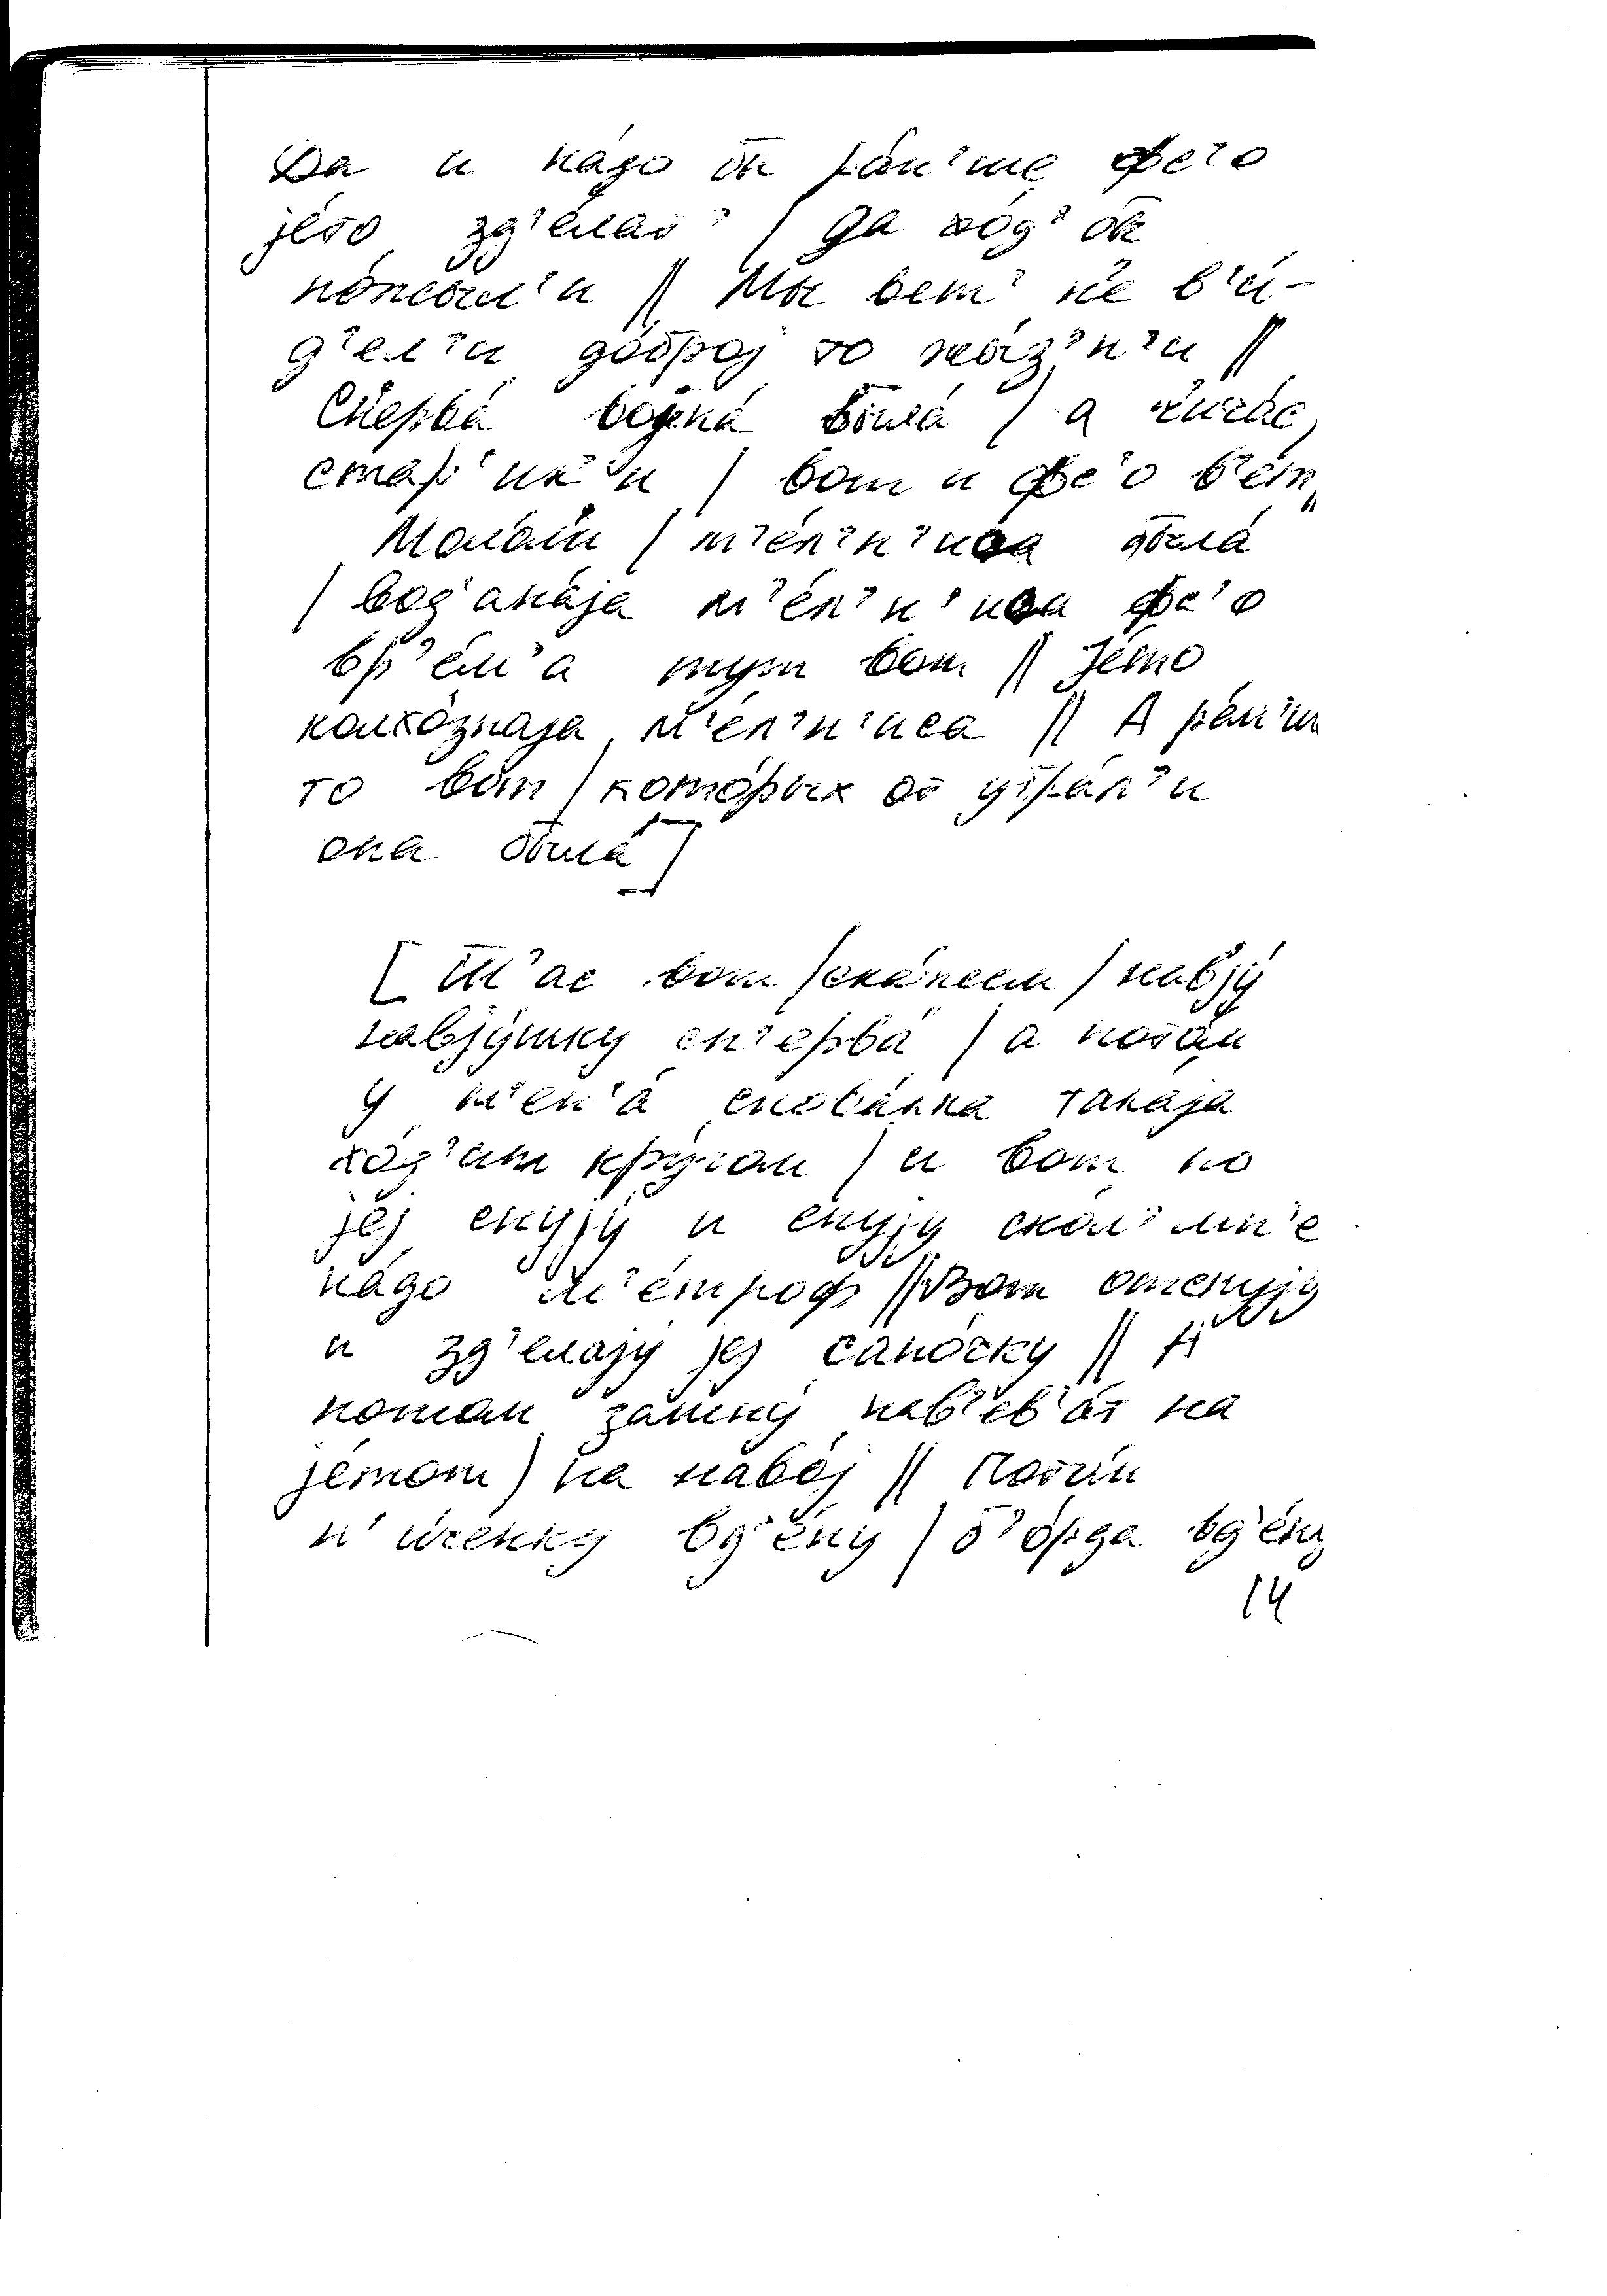 Да и на́до бы ра́н'ше фс'о
jéто зд'е́лат' / да хо́д' бы
по́жыл'и // Мы вет' не в'и́-
д'ел'и до́број то жы́з'н'и //
Сперва́ војна́ была́ / а
стар'ик'и / вот и фс'о в'ет //
Моло́л'и / м'е́л'н'иса была́
/ вод'ана́ја м'е́л'н'иса фс'о
вр'е́м'а тут вот // Је́то
колхо́знаја м'е́л'н'иса // А ра́н'ш
то вот / кото́рых от
она была́]
[Ш'ас вот / ска́жем / навју́
сп'ерва́ / а пото́м
у м'ен'а́ снова́лка така́ја
хо́д'ит кру́гом / и вот по
јеј снују́ и снују́ скол' мн'е
на́до м'е́троф // Вот отснују́
и зд'елају́ јеј сапо́чку // А
потом зачну́ нав'ев'а́т на
је́том / на наво́ј // Пото́м
н'и́ченку вд'е́ну / б'о́рда вд'е́ну
14